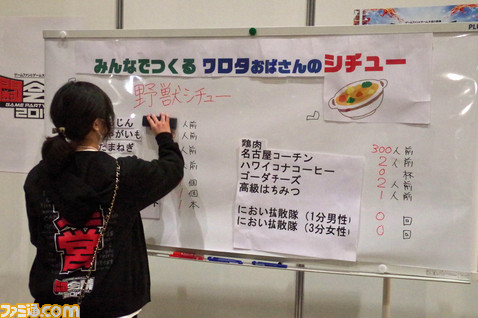 みんなでつくる ワロタおばさんのシチュー
野獣シチュー
じん
がいも
たまねぎ
人前
人前
人前
個
個
本
鶏肉 300人前
名古屋コーチン 2人前
ハワイコナコーヒー 0杯
ゴーダチーズ 2人前
高級はちみつ 1人前
におい拡散隊(1分男性) 0回
におい拡散隊(3分女性) 0回
闘会議
GAME PARTY
運営
闘会議
ファミ通.com